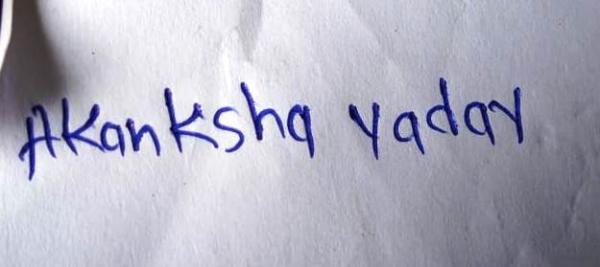 Akanksha yaday